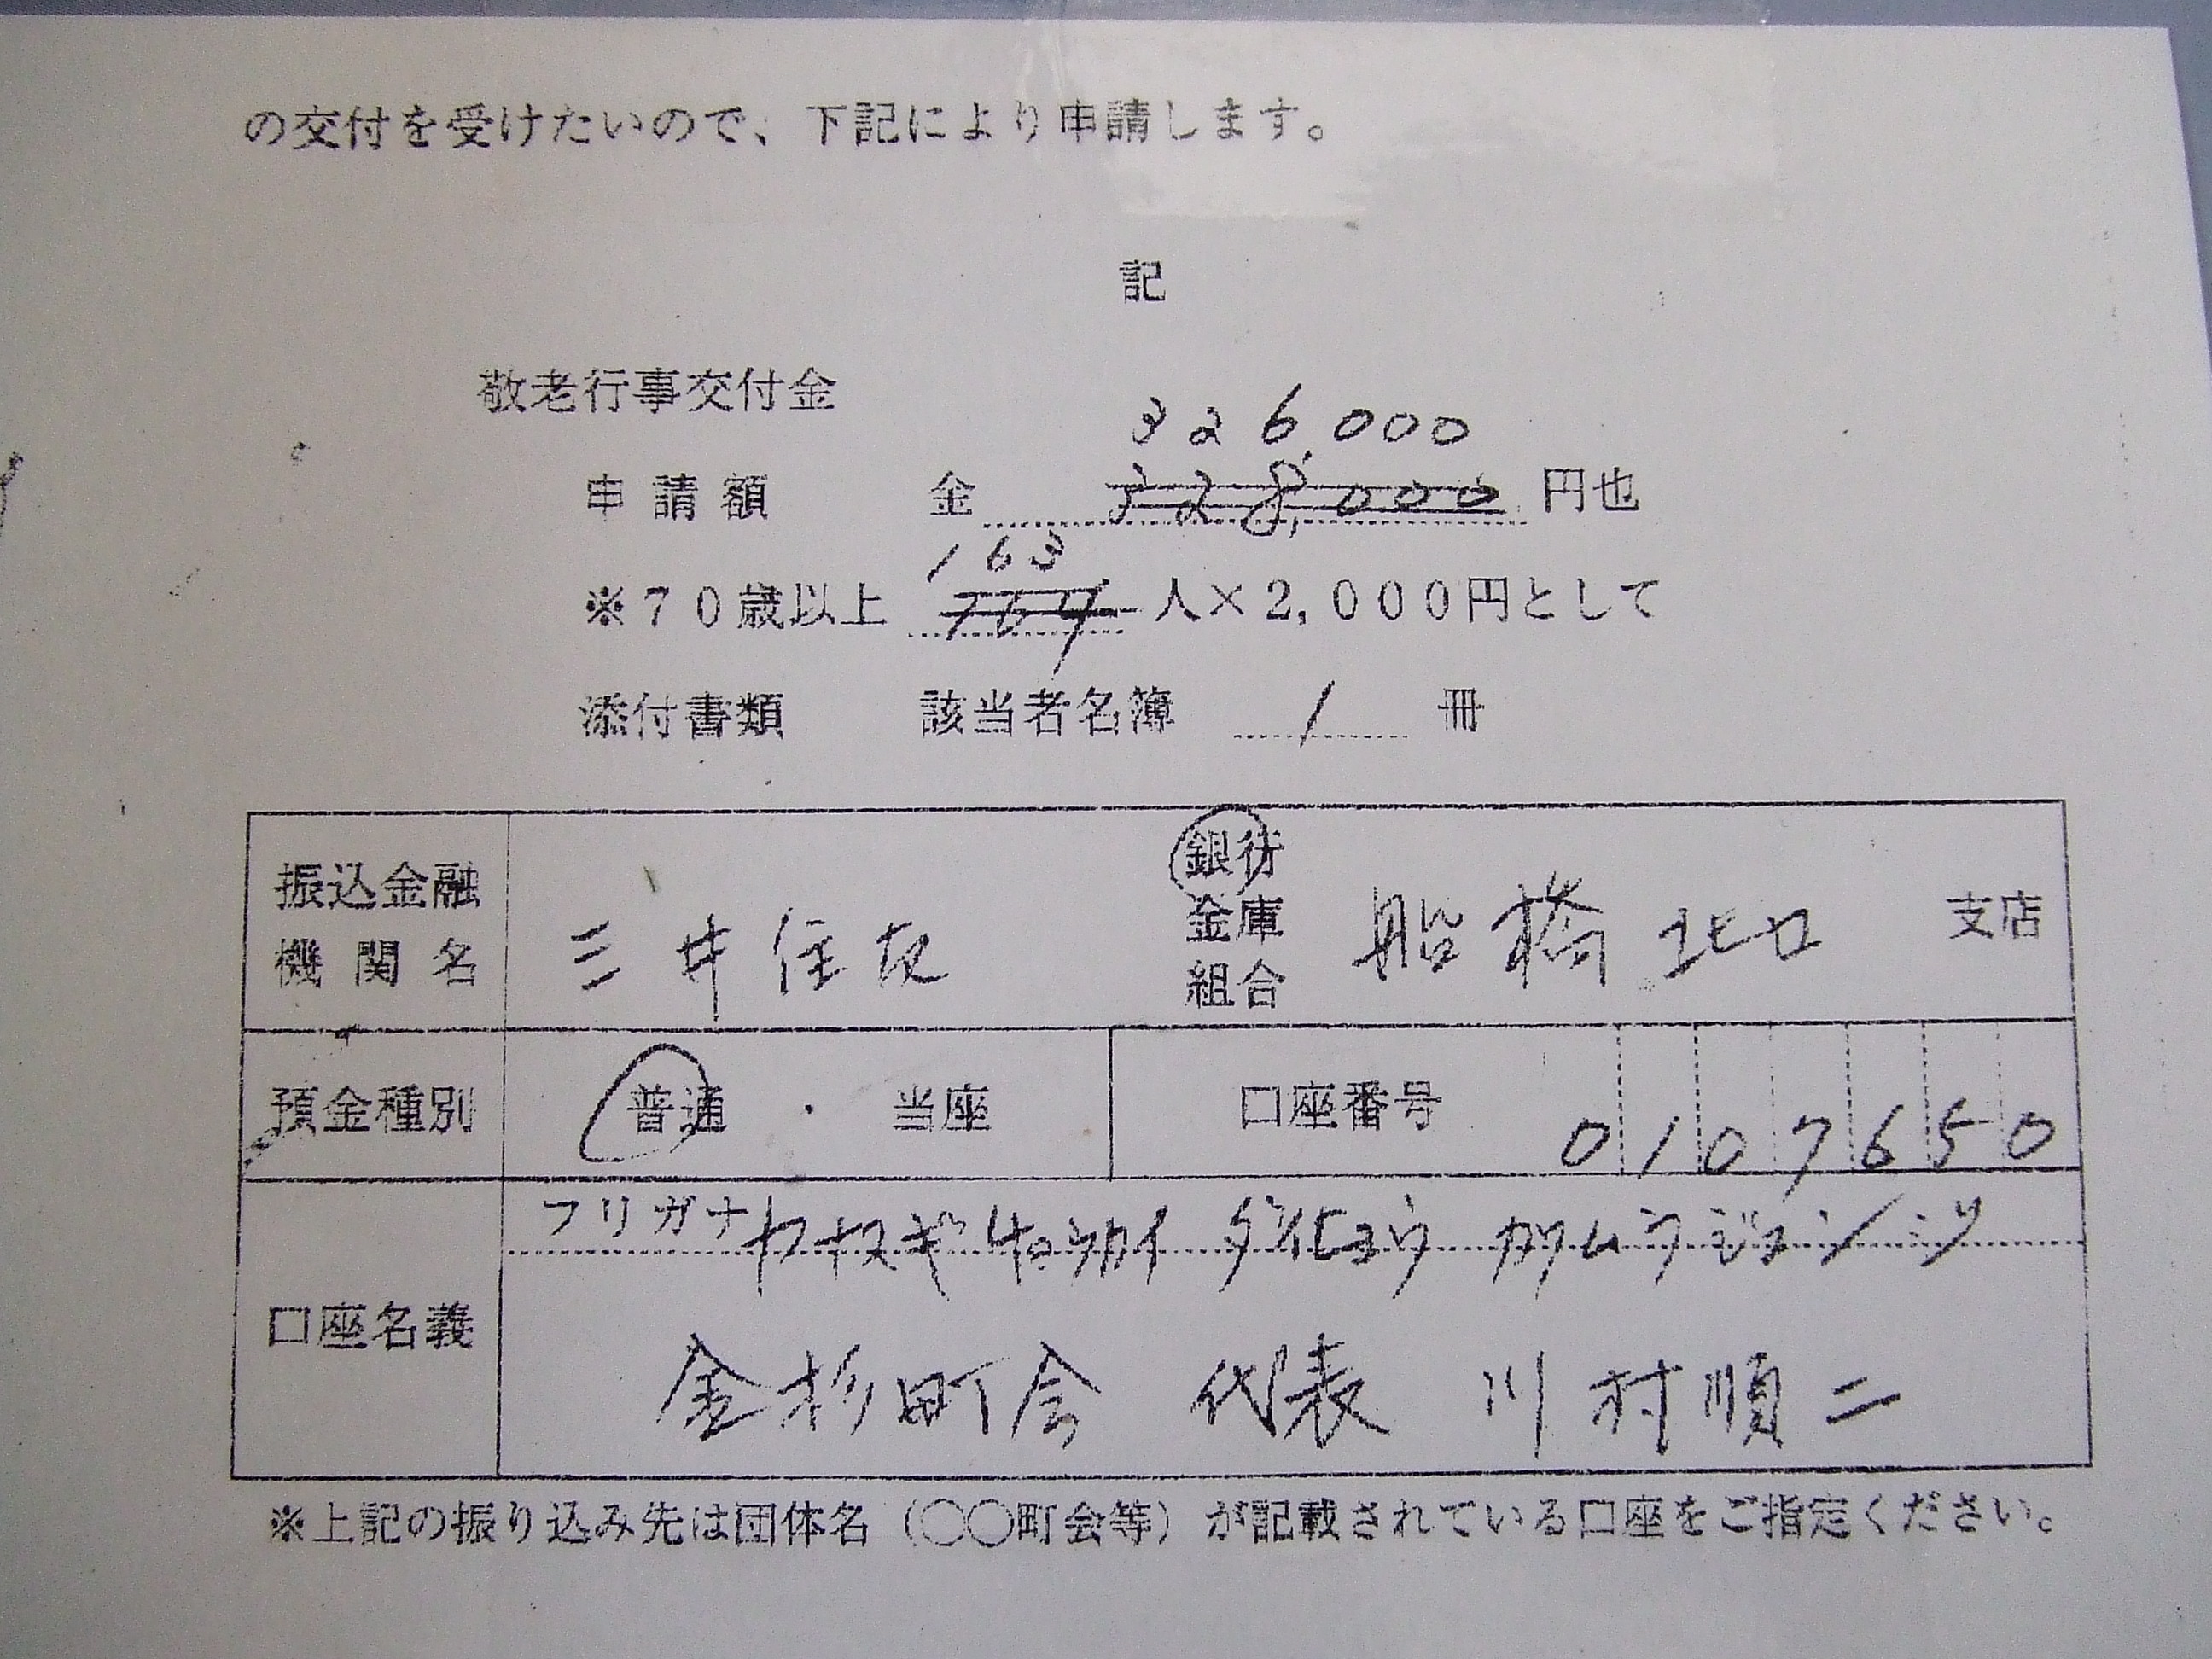 の交付を受けたいので、下記により申請します。
記
敬老行事交付金
326,000
申請額 金 328,000 円也
163
※70歳以上 164 人×2,000円として
添付書類 該当者名簿 1 冊
振込金融機関名 三井住友 銀行 金庫 組合 船橋北口 支店
預金種別 普通 ・ 当座 口座番号 0107650
フリガナ カナスギチョウカイ ダイヒョウ カワムラジュンジ
口座名義 金杉町会 代表 川村順二
※上記の振り込み先は団体名（○○町会等）が記載されている口座をご指定ください。